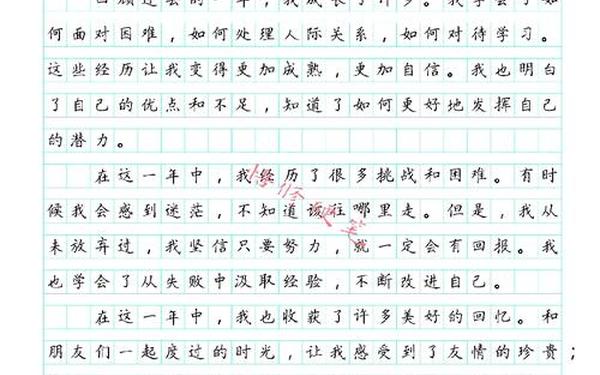 回顾过去的一年，我成长了许多。我学会了如
何面对困难，如何处理人际关系，如何对待学习。
这些经历让我变得更加成熟，更加自信。我也明白
了自己的优点和不足，知道了如何更好地发挥自己
的潜力。
在这一年中，我经历了很多挑战和困难。有时
候我会感到迷茫，不知道该往哪里走。但是，我从
未放弃过，我坚信只要努力，就一定会有回报。我
也学会了从失败中汲取经验，不断改进自己。
在这一年中，我也收获了许多美好的回忆。和
朋友们一起度过的时光，让我感受到了友情的珍贵；